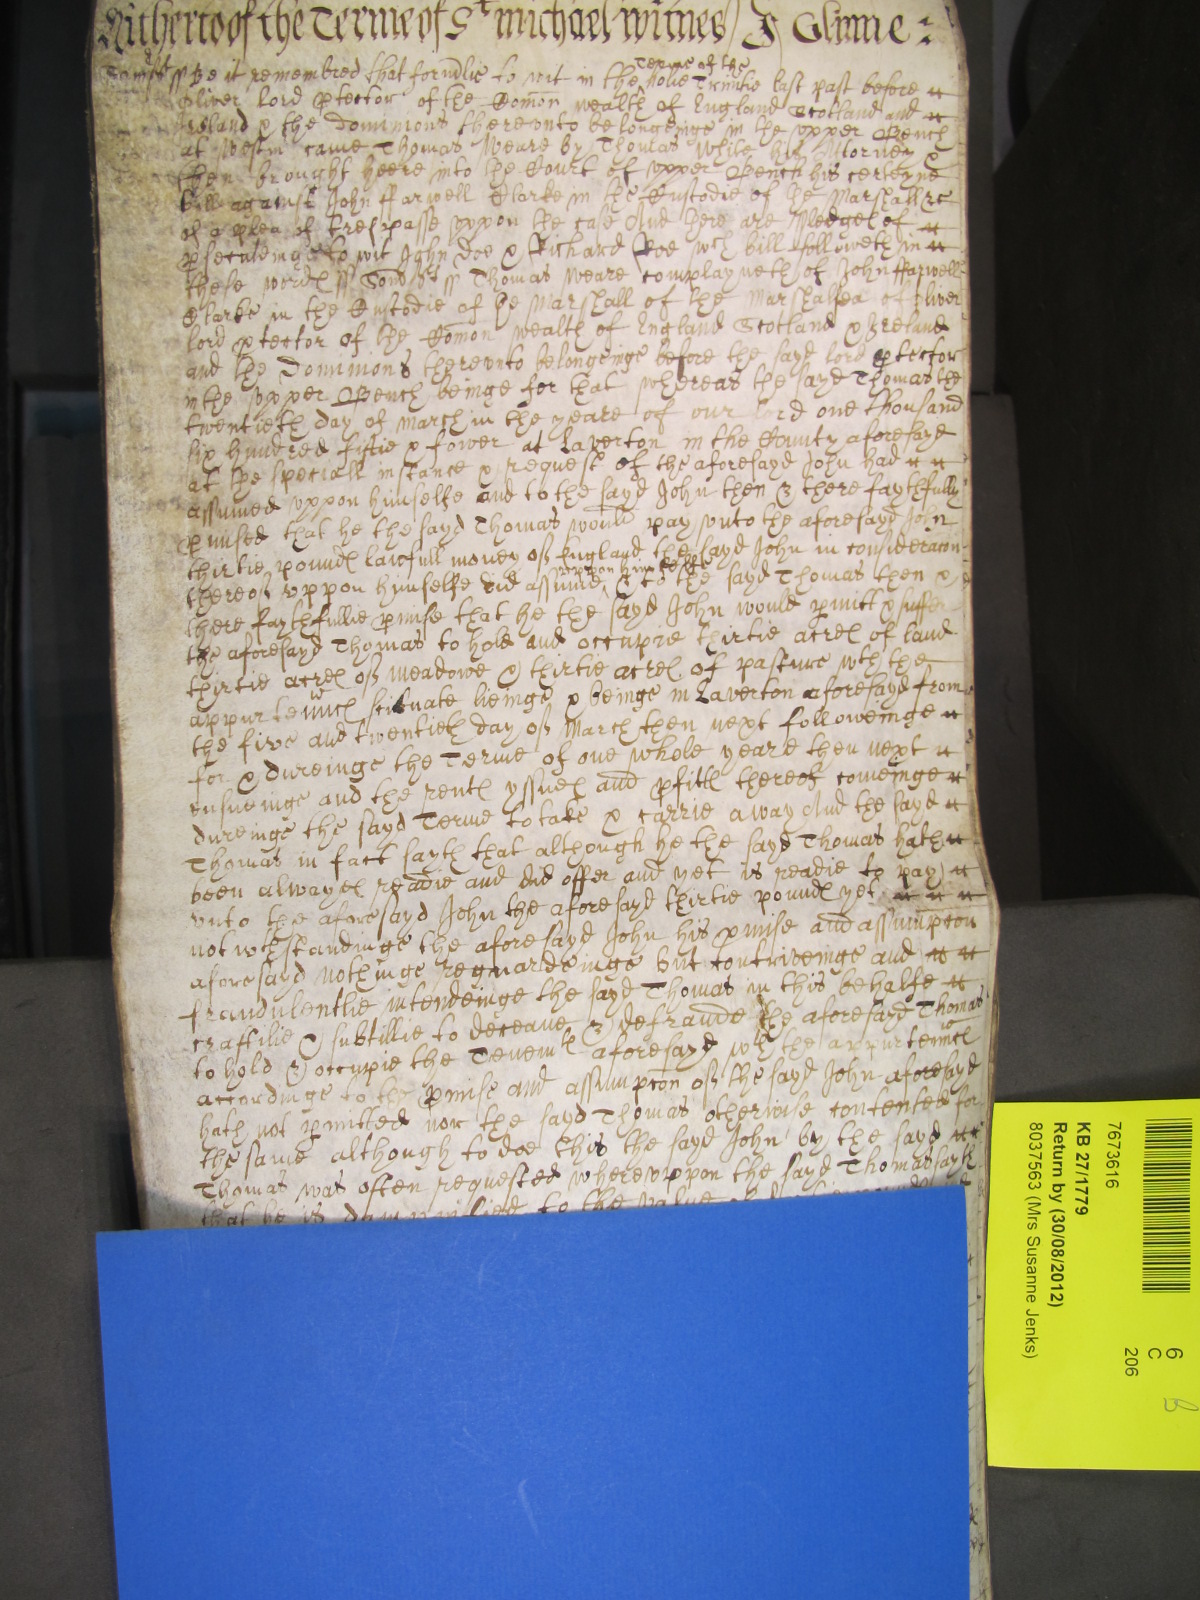 Hitherto of the Terme of St michael witnes J Glinne :
Somst ss Be it remembred that formlie to wit in the Terme of the holie Trinitie last past before
Oliver lord ptector of the Comon wealth of England Scotland and
Ireland & the dominions therevnto belongeinge in the vpper Bench
at Westm came Thomas Weare by Thomas While his Attorney &
then brought heere into the Court of vpper Bench his certeyne
bill against John ffarwell Clarke in the Custodie of the Marshall &c
of a plea of trespasse vppon the case And there are pledges of
psecuteinge to wit John Doe & Richard Roe wch bill followeth in
these wordes ss Somst ss Thomas Weare complayneth of John ffarwell
Clarke in the Custodie of the Marshall of the Marshalsea of Oliver
lord ptector of the Comon wealth of England Scotland & Ireland
and the Dominions therevnto belongeinge before the sayd lord ptector
in the vpper Bench beinge for that whereas the sayd Thomas the
twentieth day of March in the yeare of our lord one thousand
six hundred fiftie & fower at Laverton in the County aforesayd
at the speciall instance & request of the aforesayd John had
assumed vppon himselfe and to the sayd John then & there faythfully
pmised that he the sayd Thomas would pay vnto the aforesayd John
thirtie pounds lawfull money of England the sayd John in consideracon
thereof vppon himselfe did assume vppon himselfe & to the sayd Thomas then &
there faythfullie pmise that he the sayd John would pmitt & suffer
the aforesayd Thomas to hold and occupie thirtie acres of land
thirtie acres of meadowe & thirtie acres of pasture wth the
appurtennces scituate lieinge & beinge in Laverton aforesayd from
the five and twentieth day of March then next followeinge
for & dureinge the Terme of one whole yeare then next
ensueinge and the rents yssues and pfitts thereof comeinge
dureinge the sayd Terme to take & carrie away And the sayd
Thomas in fact sayth that although he the sayd Thomas hath
been alwayes readie and did offer and yet is readie to pay
vnto the aforesayd John the aforesayd thirtie pounds yet
notwthstandinge the aforesayd John his pmise and assumpcon
aforesayd nothinge reguardeinge but contriveinge and
fraudulentlie intendeinge the sayd Thomas in this behalfe
craftilie & subtillie to deceave & defraude the aforesayd Thomas
to hold & occupie the Tenemts aforesayd wth the appurtennces
accordinge to the pmise and assumpcon of the sayd John aforesayd
hath not pmitted nor the sayd Thomas otherwise contented for
the same although to doe this the sayd John by the sayd
Thomas was often requested wherevppon the sayd Thomas sayth
that he is damnified to the value of
7673616
KB 27/1779
Return by (30/08/2012)
8037563 (Mrs Susanne Jenks)
6
C
206
B